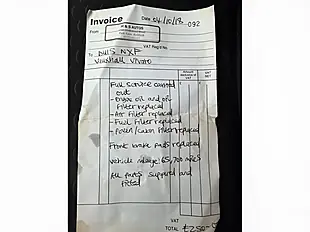 Invoice Date 04/10/18 092
From
VAT Reg'd No.
To
Vauxhall Vivaro
Full service carried
out
- Engine oil and oil
filter replaced
- Air filter replaced
- Fuel filter replaced
- Pollen/cabin filter replaced
Front brake pads replaced
Vehicle mileage: 65,700 miles
All parts supplied and
fitted
VAT
TOTAL